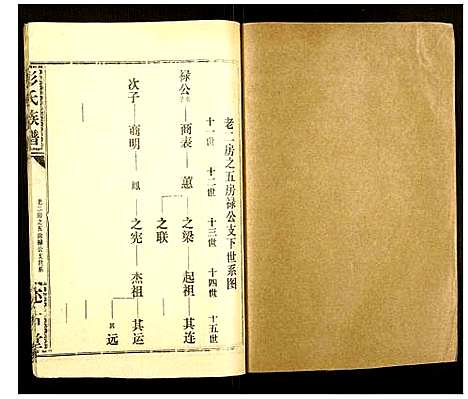 老二房之五房禄公支下世系图
十一世 十二世 十三世 十四世 十五世
禄公 商表 蕙 之梁 起祖 其连
之联
次子 商明 凤 之宪 杰祖 其运
其远
彭氏族谱
老二房之五房禄公支世系